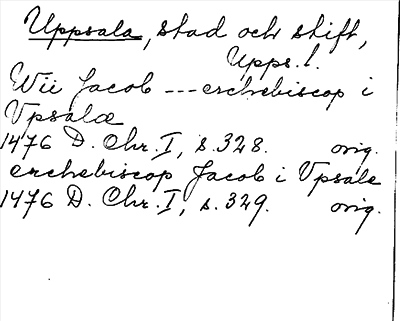 Uppsala, stad och stift,
Upps. l.
Wii Jacob --- erchebiscop i
Vpsalæ
1476 D. Chr. I, s. 328. orig.
erchebiscop Jacob i Vpsale
1476 D. Chr. I, s. 329. orig.